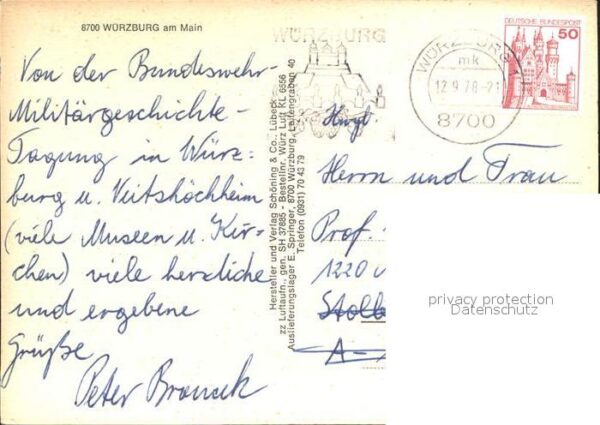 8700 WÜRZBURG am Main
Von der Bundeswehr-
Militärgeschichte-
Tagung in Würz-
burg u. Veitshöchheim
(viele Museen u. Kir-
chen) viele herzliche
und ergebene
Grüße
Peter
Hersteller und Verlag Schöning & Co., Lübeck
zz Luftaufn., gen. SH 37885 - Bestellnr. Würz Luft KL 6856
Auslieferungslager E. Springer, 8700 Würzburg,
Telefon (0931) 70 43 79
WÜRZBURG
WÜRZBURG 1
mk
12.9.78-21
8700
DEUTSCHE BUNDESPOST
50
Herrn und Frau
Prof.
1220
Stollb
A-
privacy protection
Datenschutz